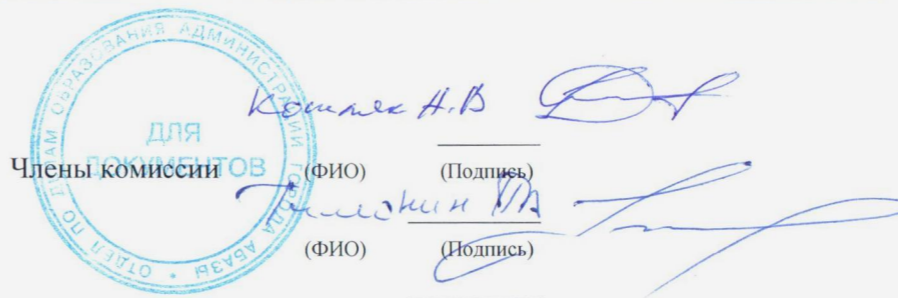 ОТДЕЛ ПО ДЕЛАМ ОБРАЗОВАНИЯ АДМИНИСТРАЦИИ ГОРОДА АБАЗЫ •
ДЛЯ
ДОКУМЕНТОВ
Н.В
Члены комиссии (ФИО) (Подпись)
(ФИО) (Подпись)